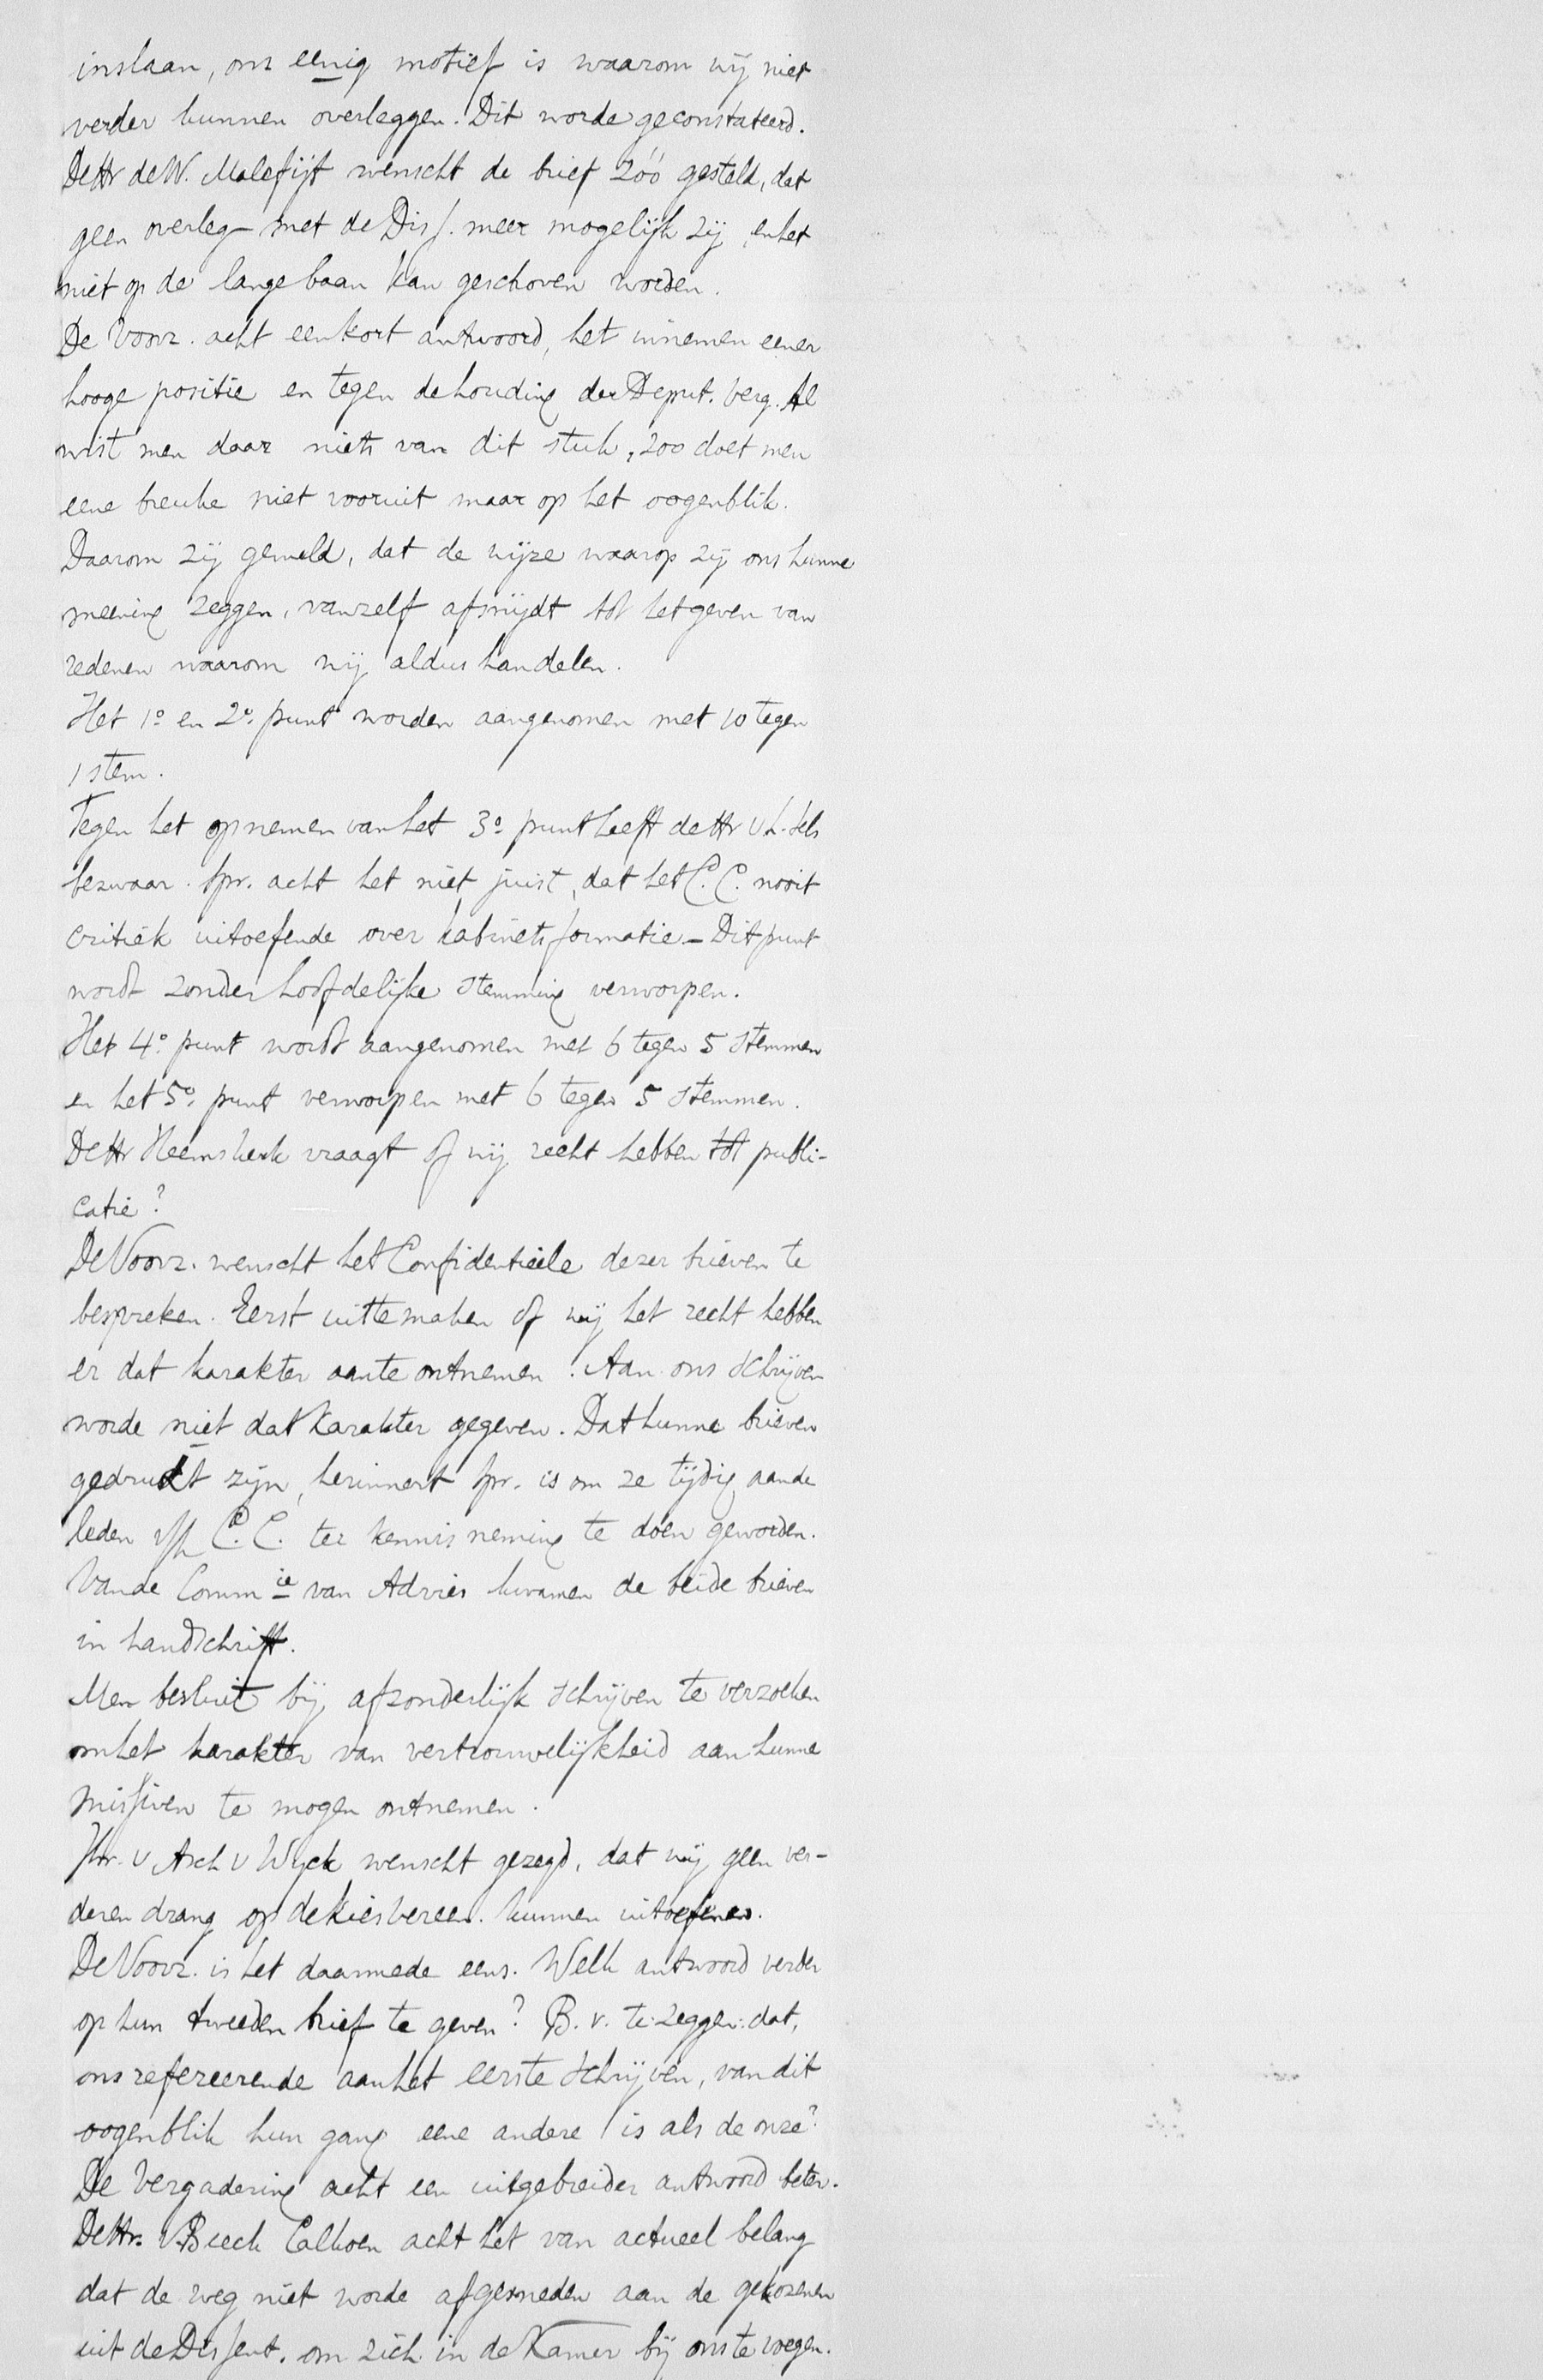 inslaan, ons eenig motief is waarom wij niet
verder kunnen overleggen. Dit worde geconstateerd.
De Hr de W. Malefijt wenscht de brief zóó gesteld, dat
geen overleg met de Diss. meer mogelijk zij, en het
niet op de lange baan kan geschoven worden.
De Voorz. acht een kort antwoord, het innemen eener
hooge positie en tegen de houding der Deput. verg. Al
wist men daar niets van dit stuk, zoo doet men
eene breuke niet vooruit maar op het oogenblik.
Daarom zij gemeld, dat de wijze waarop zij ons hunne
meening zeggen, vanzelf afsnijdt tot het geven van
redenen waarom wij aldus handelen.
Het 1o en 2o. punt worden aangenomen met 10 tegen
1 stem.
Tegen het opnemen van het 3o punt heeft de Hr
bezwaar. Spr. acht het niet juist, dat het C.C. nooit
critiek uitoefende over kabinetsformatie – Dit punt
wordt zonder hoofdelijke stemming verworpen.
Het 4o. punt wordt aangenomen met 6 tegen 5 stemmen
en het 5o. punt verworpen met 6 tegen 5 stemmen.
De Hr Heemskerk vraagt of wij recht hebben tot publi-
catie?
De Voorz. wenscht het Confidentieele dezer brieven te
bespreken. Eerst uit te maken of wij het recht hebben
er dat karakter aan te ontnemen. Aan ons schrijven
worde niet dat karakter gegeven. Dat hunne brieven
gedrukt zijn, herinnert Spr. is om ze tijdig aan de
leden v/h C.C. ter kennisneming te doen geworden.
Van de Commie van Advies kwamen de beide brieven
in handschrift.
Men besluit bij afzonderlijk schrijven te verzoeken
om het karakter van vertrouwelijkheid aan hunne
missiven te mogen ontnemen.
Jhr. v Asch v Wyck wenscht gezegd, dat wij geen ver-
deren drang op de kiesvereen. kunnen uitoefenen.
De Voorz. is het daarmede eens. Welk antwoord verder
op hun tweeden brief te geven? B.v. te zeggen: dat,
ons refereerende aan het eerste schrijven, van dit
oogenblik hun gang eene andere is als de onze?
De Vergadering acht een uitgebreider antwoord beter.
De Hr. v. Beeck Calkoen acht het van actueel belang
dat de weg niet worde afgesneden aan de gekozenen
uit de Dissent. om zich in de Kamer bij ons te voegen.